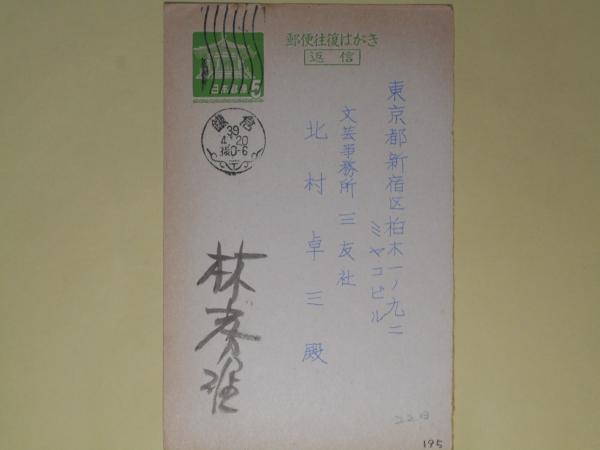 郵便往復はがき
返信
日本郵便 5
鎌倉
39
4.20
後0-6
東京都新宿区柏木一ノ九二
ミヤコビル
文芸事務所 三友社
北村卓三殿
林房雄
22日
195